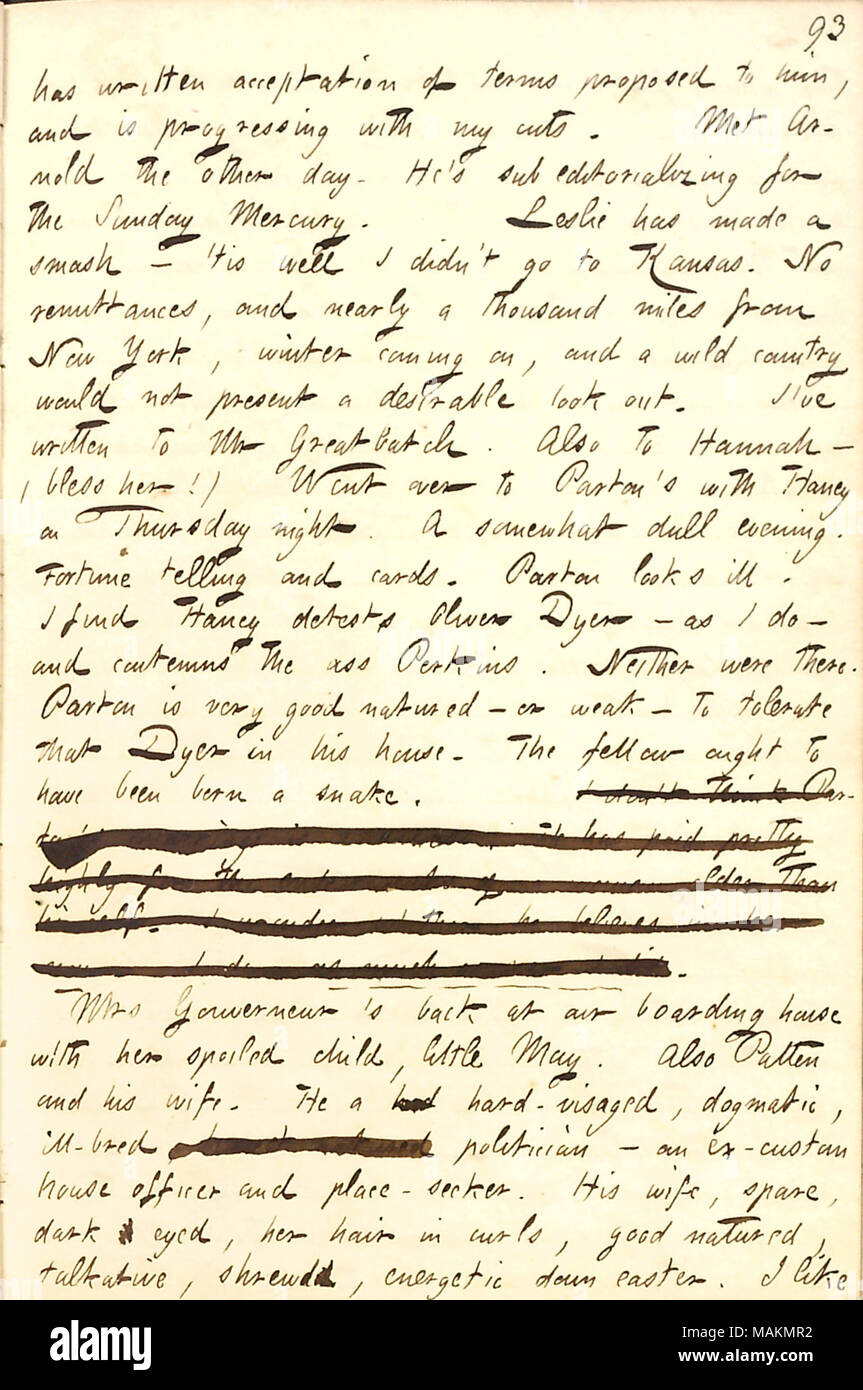 93
has written acceptation of terms proposed to him,
and is progressing with my cuts. Met Ar-
nold the other day. He's sub editorializing for
the Sunday Mercury. Leslie has made a
smash — 'tis well I didn't go to Kansas. No
remittances, and nearly a thousand miles from
New York, winter coming on, and a wild country
would not present a desirable look out. I've
written to Mr Greatbatch. Also to Hannah —
(bless her!) Went over to Parton's with Haney
on Thursday night. A somewhat dull evening.
Fortune telling and cards. Parton looks ill.
I find Haney detests Oliver Dyer — as I do —
and contemns the ass Perkins. Neither were there.
Parton is very good natured — or weak — to tolerate
that Dyer in his house. The fellow ought to
have been born a snake. I don't think Par-
has paid pretty
highly for the older than
himself. I wonder he believes
as much
Mrs Gouverneur's back at our boarding house
with her spoiled child, little May. Also Patten
and his wife. He a hard-visaged, dogmatic,
ill-bred politician — an ex-custom
house officer and place-seeker. His wife, spare,
dark eyed, her hair in curls, good natured,
talkative, shrewd, energetic down easter. I like
alamy
Image ID: MAKMR2
www.alamy.com